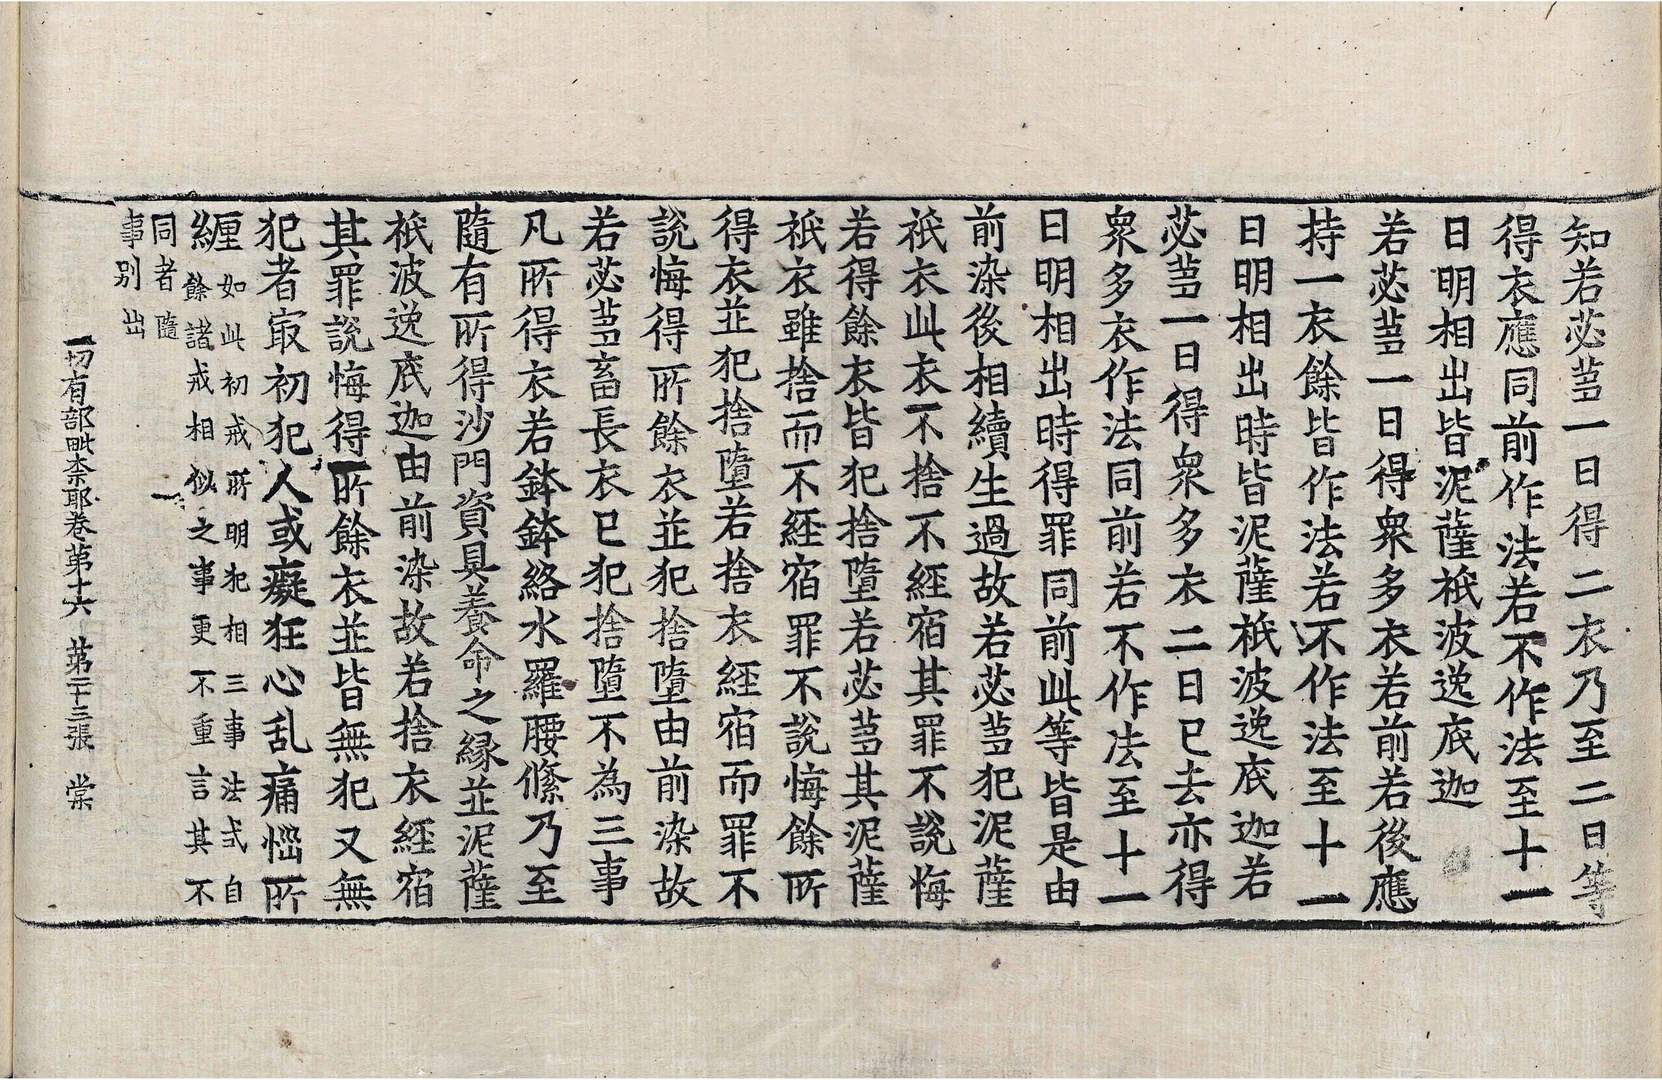 知若苾芻一日得二衣乃至二日等
得衣應同前作法若不作法至十一
日明相出皆泥薩祇波逸底迦
若苾芻一日得衆多衣若前若後應
持一衣餘皆作法若不作法至十一
日明相出時皆泥薩祇波逸底迦若
苾芻一日得衆多衣二日已去亦得
衆多衣作法同前若不作法至十一
日明相出時得罪同前此等皆是由
前染後相續生過故若苾芻犯泥薩
祇衣此衣不捨不經宿其罪不說悔
若得餘衣皆犯捨墮若苾芻其泥薩
祇衣雖捨而不経宿罪不説悔餘所
得衣並犯捨墮若捨衣経宿而罪不
説悔得所餘衣並犯捨墮由前染故
若苾芻畜長衣已犯捨墮不為三事
凡所得衣若鉢鉢絡水羅腰絛乃至
隨有所得沙門資具養命之縁並泥薩
祇波逸底迦由前染故若捨衣経宿
其罪説悔得所餘衣並皆無犯又無
犯者㝡初犯人或癡狂心乱痛惱所
纏如此初戒所明犯相三事法式自
餘諸戒相似之事更不重言其不
同者隨
事別出
一切有部毗柰耶卷第十六 第二十三張 棠